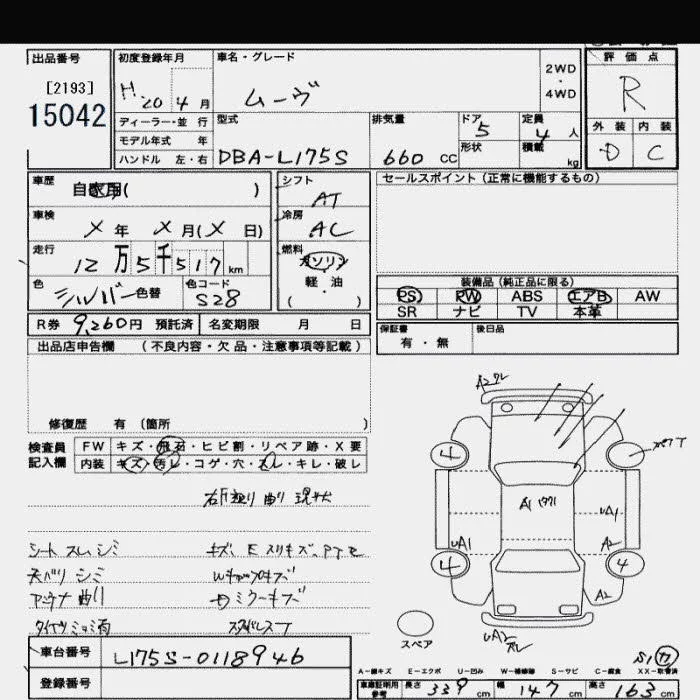 出品番号
[2193]
15042
初度登録年月
H 20 4 月
車名・グレード
ムーヴ
2WD
・
4WD
評 価 点
R
外 装 内 装
D C
ディーラー・並 行
モデル年式 年
ハンドル 左・右
型式
DBA-L175S
排気量
660 CC
ドア 5
形状
定員 4 人
積載 kg
車歴 自家用( )
車検 X 年 X 月(X 日)
走行 12 万 5 千 5 1 7 km
色 シルバー 色替
色コード S28
シフト AT
冷房 AC
燃料 ガソリン
軽・油
( )
R券 9,260円 預託済
名変期限 月 日
セールスポイント(正常に機能するもの)
装備品(純正品に限る)
PS PW ABS エアB AW
SR ナビ TV 本革
保証書
有・無
後日品
出品店申告欄 (不良内容・欠品・注意事項等記載)
修復歴 有 (箇所 )
検査員
記入欄
FW キズ・飛石・ヒビ割・リペア跡・X要
内装 キズ・汚レ・コゲ・穴・スレ・キレ・破レ
曲り 現状
シート スレ シミ
天バリ シミ
アンテナ曲り
A2
4
4
4
A1
UA1
UA1
A2
A2
スペア
車台番号 L175S-0118946
登録番号
A−線キズ E−エクボ U−凹み W−補修跡 S−サビ C−腐食 XX−取替済
車庫証明用
参考
長さ 339 cm 幅 147 cm 高さ 163 cm